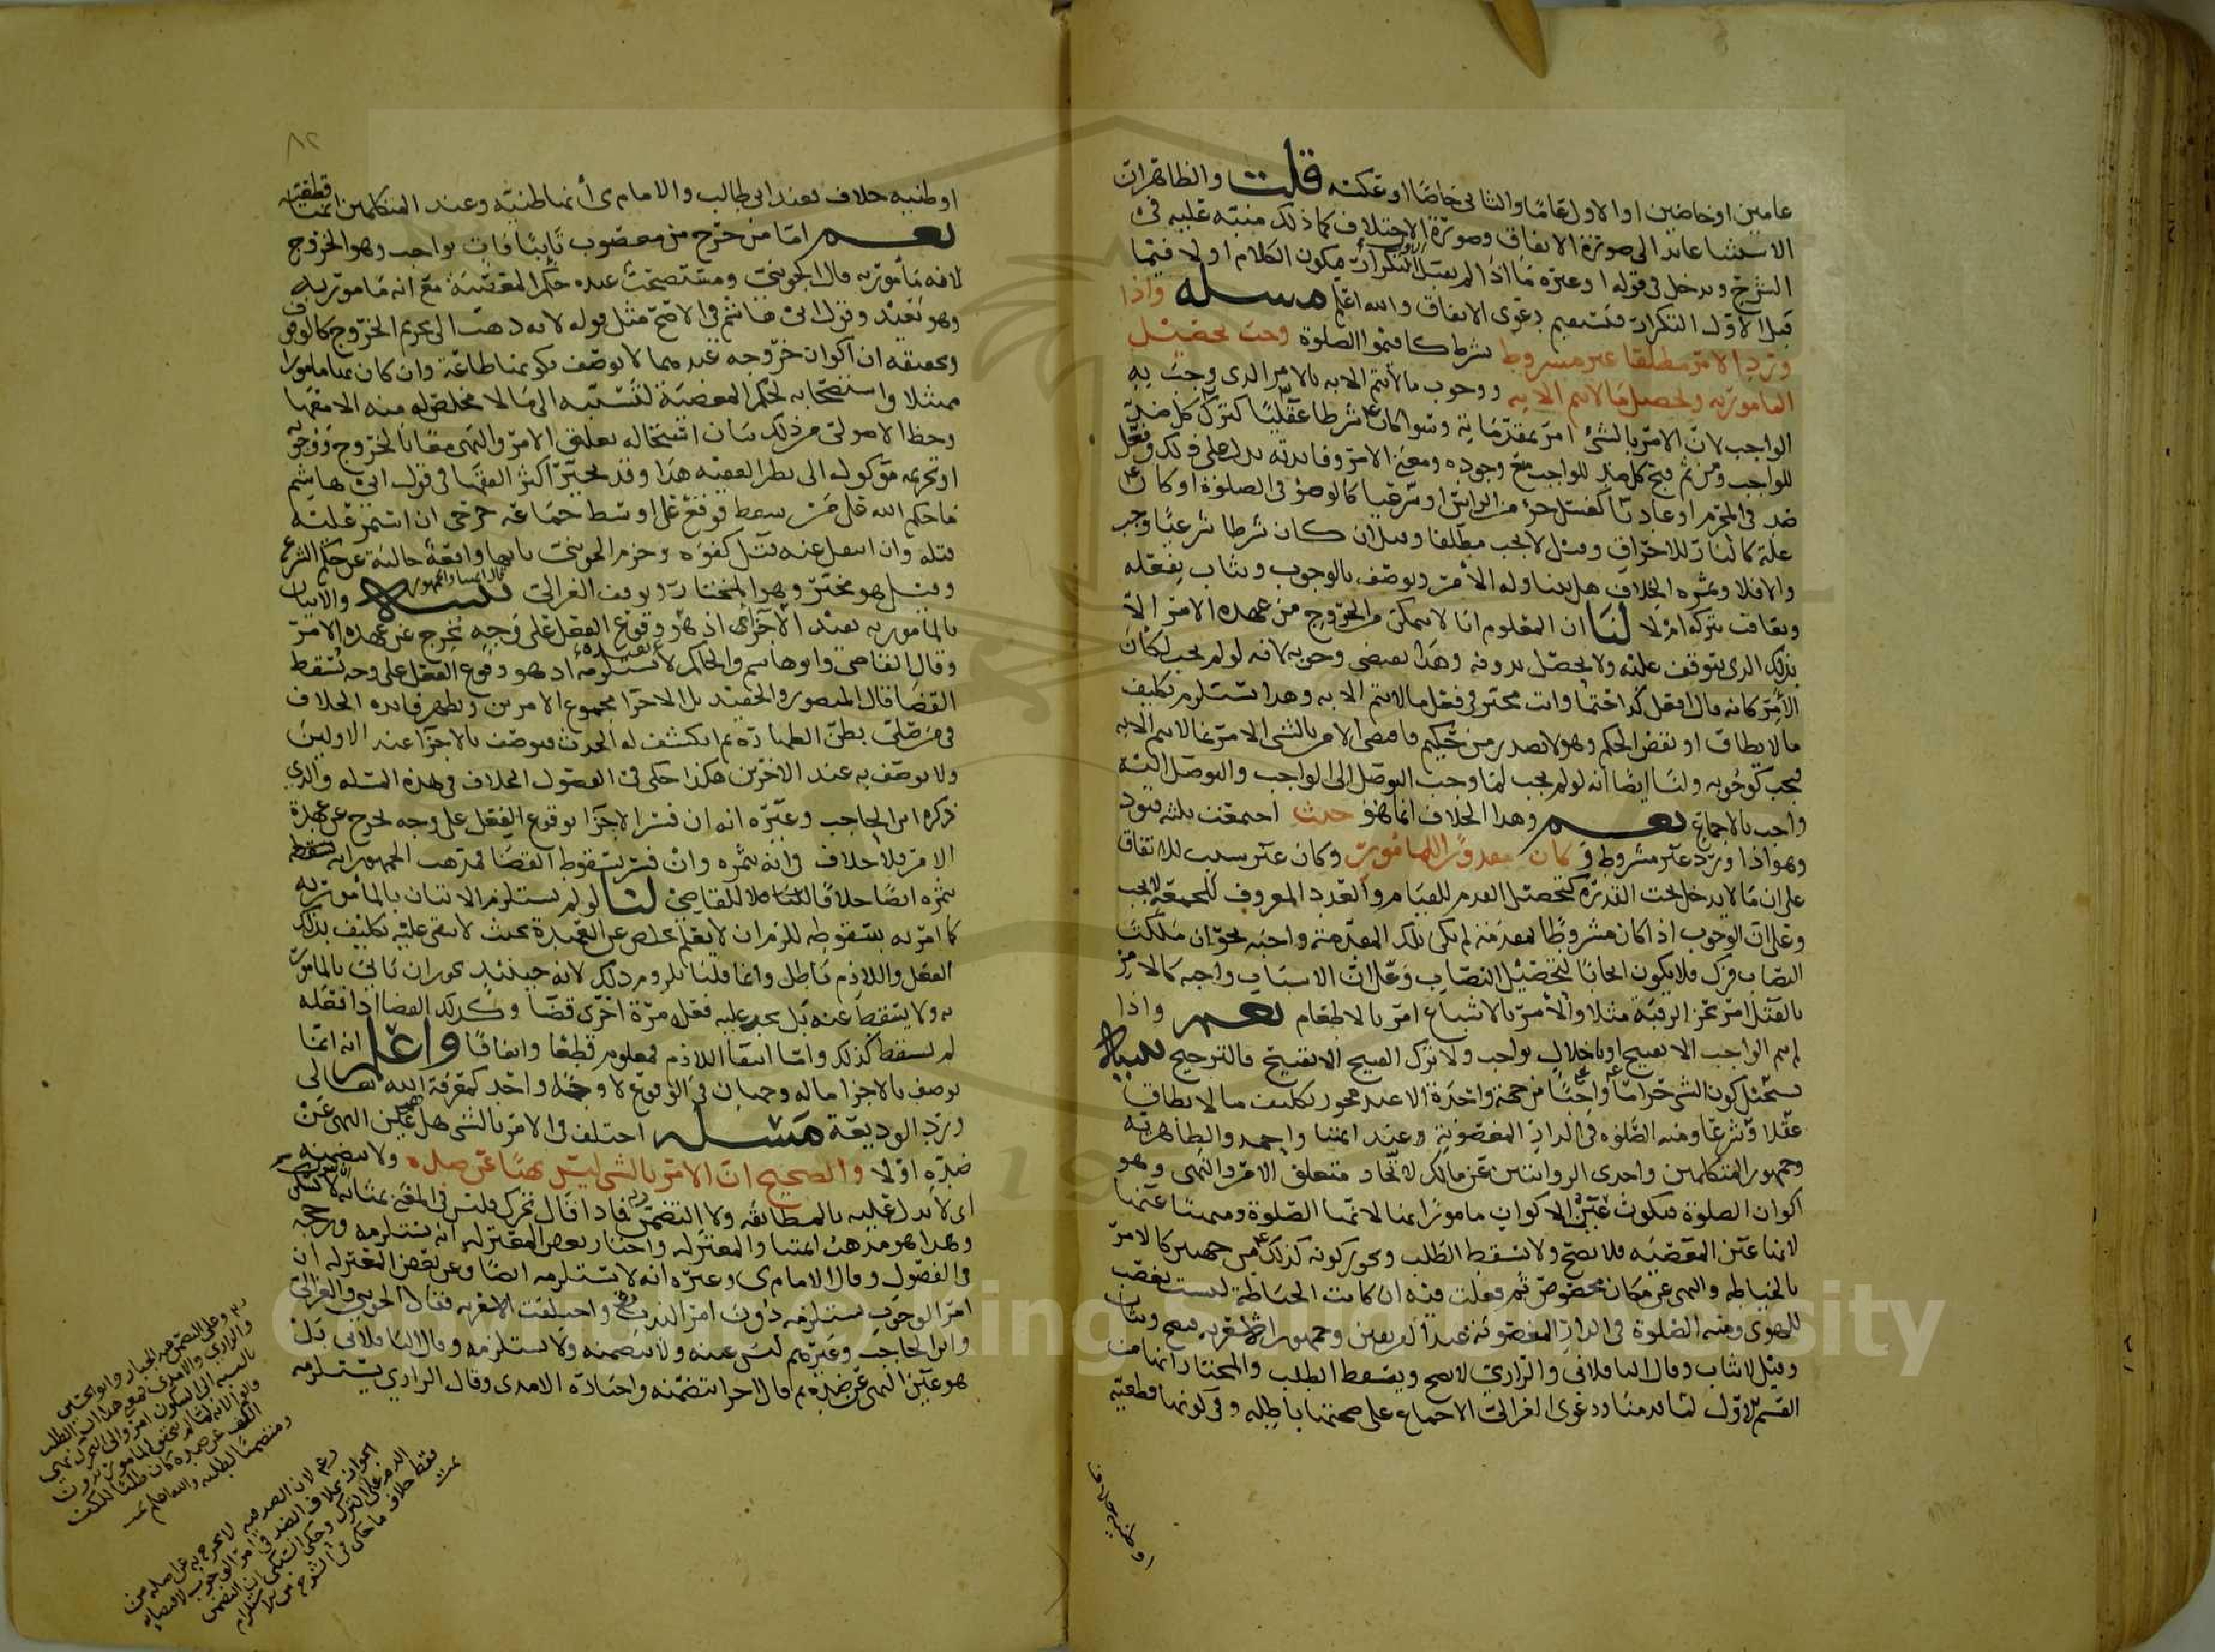 عامين او خاصين او الاول عاما والثاني خاصا او عكسه قلت والظاهر ان
الاستثنا عايد الى صورة الاتفاق وصورة الاختلاف كما ذلك منبه عليه في
الشرح ويدخل في قولنا وغيره ما اذا لم يقبل الاول التكرار فيكون الكلام اولا فيما
قبل الاول التكرار فتستقيم دعوى الاتفاق والله اعلم مسئله واذا
ورد الامر مطلقا غير مشروط بشرط كاقيموا الصلوة وجب تحصيل
المامور به وتحصيل ما لا يتم الا به ووجوب ما لا يتم الا به بالامر الذي وجب به
الواجب لان الامر بالشئ امر بمقدماته وسوا كان شرطا عقليا كترك كل ضد
للواجب ومن ثم قبح كل ضد للواجب مع وجوده ومعنى الامر وفايدته يدل على ذلك وفعل
ضد في المحرم او عاديا كغسل جزء من الراس او شرعيا كالوضؤ في الصلوة او كان
علة كالنار للاحراق وقيل لا يجب مطلقا وقيل ان كان شرطا شرعيا وجب
والا فلا وثمرة الخلاف هل يتناوله الامر ويوصف بالوجوب ويثاب بفعله
ويعاقب بتركه ام لا لنا ان المعلوم انا لا نتمكن من الخروج من عهدة الامر الا
بذلك الذي يتوقف عليه ولا يحصل بدونه وهذا يقتضي وجوبه لانه لو لم يجب لكان
الامر كانه قال افعل كذا حتما وانت مخير في فعل ما لا يتم الا به وهذا يستلزم تكليف
ما لا يطاق او نقض الحكم وهو لا يصدر من حكيم فاقتضى الامر بالشى الامر بما لا يتم الا به
فيجب كوجوبه ولنا ايضا انه لو لم يجب لما وجب التوصل الى الواجب والتوصل اليه
واجب بالاجماع نعم وهذا الخلاف انما هو حيث اجتمعت ثلثه قيود
وهو اذا ورد غير مشروط و كان مقدورا للمامور وكان غير سبب للاتفاق
على ان ما لا يدخل تحت القدرة كتحصيل القدم للقيام والعدد المعروف للجمعة لا يجب
وعلى ان الوجوب اذا كان مشروطا بمقدمة لم يكن تلك المقدمة واجبه نحو ان ملكت
النصاب فزك فلا يكون ايجابا لتحصيل النصاب وعلى ان الاسباب واجبه كالامر
بالقتل امر بحز الرقبة مثلا والامر بالاشباع امر بالاطعام نعم واذا
لم يتم الواجب الا بقبيح او باخلال بواجب ولا ترك القبيح الا بقبيح فالترجيح مسئلة
يستحيل كون الشى حراما واجبا من جهة واحدة الا عند مجوز تكليف ما لا يطاق
عقلا وشرعا ومنه الصلوة في الدار المغصوبة وعند ايمتنا واحمد والظاهرية
وجمهور المتكلمين واحدى الروايتين عن مالك لاتحاد متعلق الامر والنهي وهو
اكوان الصلوة فيكون عين الاكوان مامورا بها لانها الصلوة ومنهيا عنها
لانها عين المعصية فلا يصح ولا يسقط الطلب ويجوز كونه كذلك من جهتين كالامر
بالخياطه والنهي عن مكان مخصوص ثم فعلت فيه ان كانت الخياطة ليست بغصب
للهوى ومنه الصلوة في الدار المغصوبة عند الفريقين وجمهور الاشعريه فيصح ويثاب
وقيل لا يثاب وقال الباقلاني والرازي لا يصح ويسقط الطلب والمختار انها من
القسم الاول لما قدمنا ودعوى الغزالي الاجماع على صحتها باطله وفي كونها قطعية
او ظنيه خلاف
٨٢
او ظنيه خلاف فعند ابي طالب والامام ى انها ظنية وعند المتكلمين انها قطعية
نعم اما من خرج من مغصوب تايبا فات بواجب وهو الخروج
لانه مامور به قال الجويني ومستصحب عليه حكم المعصية مع انه مامور به
وهو بعيد وقول ابي هاشم في الاصح مثل قوله لانه ذهب الى تحريم الخروج كالوقوف
وتحقيقه ان اكوان خروجه عندهما لا توصف بكونها طاعة وان كان بها مامورا
ممتثلا واستصحابه لحكم المعصية لتسببه الى ما لا مخلص له منه الا معها
وحظ الاصولى من ذلك بيان استحاله تعلق الامر والنهي معا بالخروج ووجوبه
او تحريمه موكول الى نظر الفقيه هذا وقد تحير اكثر الفقها في قول ابي هاشم
ما حكم الله على من سقط فوقع على اوسط جماعة جرحى ان استمر عليه
قتله وان انتقل عنه قتل كفوه وجزم الجويني بانها واقعة خالية عن حكم الشرع
وقيل هو مخير وهو المختار وتوقف الغزالي مسئله قال ايمتنا والجمهور والاتيان
بالمامور به يفيد الاجزا اذ هو وقوع الفعل على وجه يخرج عن عهدة الامر
وقال القاضي وابو هاشم والحاكم لا يستلزمه اذ هو وقوع الفعل على وجه يسقط
القضا قال المنصور والحفيد بل الاجزا مجموع الامرين وتظهر فايدة الخلاف
في من صلى بظن الطهارة ثم انكشف له الحدث فيوصف بالاجزا عند الاولين
ولا يوصف به عند الاخرين هكذا حكى في الفصول الخلاف في هذه المسئله والذي
ذكره ابن الحاجب وغيره انه ان فسر الاجزا بوقوع الفعل على وجه يخرج عن عهدة
الامر فلا خلاف في انه يثمره وان فسر بسقوط القضا فمذهب الجمهور انه
يثمره ايضا خلافا للقاضي لنا لو لم يستلزم الاتيان بالمامور به
كما امر به سقوطه للزم ان لا يعلم خلاص عن العهدة بحيث لا يبقى عليه تكليف بذلك
الفعل واللازم باطل وانما قلنا بلزوم ذلك لانه حينئذ يجوز ان ياتي بالمامور
به ولا يسقط عنه بل يجب عليه فعله مرة اخرى قضا وكذلك القضا اذا فعله
لم يسقط كذلك واما انتفا اللازم فمعلوم قطعا واتفاقا واعلم انه انما
يوصف بالاجزا ما له وجهان في الوقوع لا وجه واحد كمعرفة الله تعالى
ورد الوديعة مسئله اختلف في الامر بالشى هل هو عين النهي عن
ضده او لا والصحيح ان الامر بالشى ليس نهيا عن ضده ولا يتضمنه
اى لا يدل عليه بالمطابقه ولا التضمن فاذا قال تحرك فليس في المعنى بمثابة لا تسكن
وهذا هو مذهب ايمتنا والمعتزله واختار بعض المعتزله انه يستلزمه ورجحه
في الفصول وقال الامام ى وغيره انه لا يستلزمه ايضا وعن بعض المعتزله ان
امر الوجوب يستلزمه دون امر الندب واختلفت الاشعريه فقال الجويني والغزالي
وابن الحاجب وغيرهم ليس عينه ولا يتضمنه ولا يستلزمه وقال الباقلاني بل
هو عين النهي عن ضده ثم قال اخرا يتضمنه واختاره الامدى وقال الرازي يستلزمه